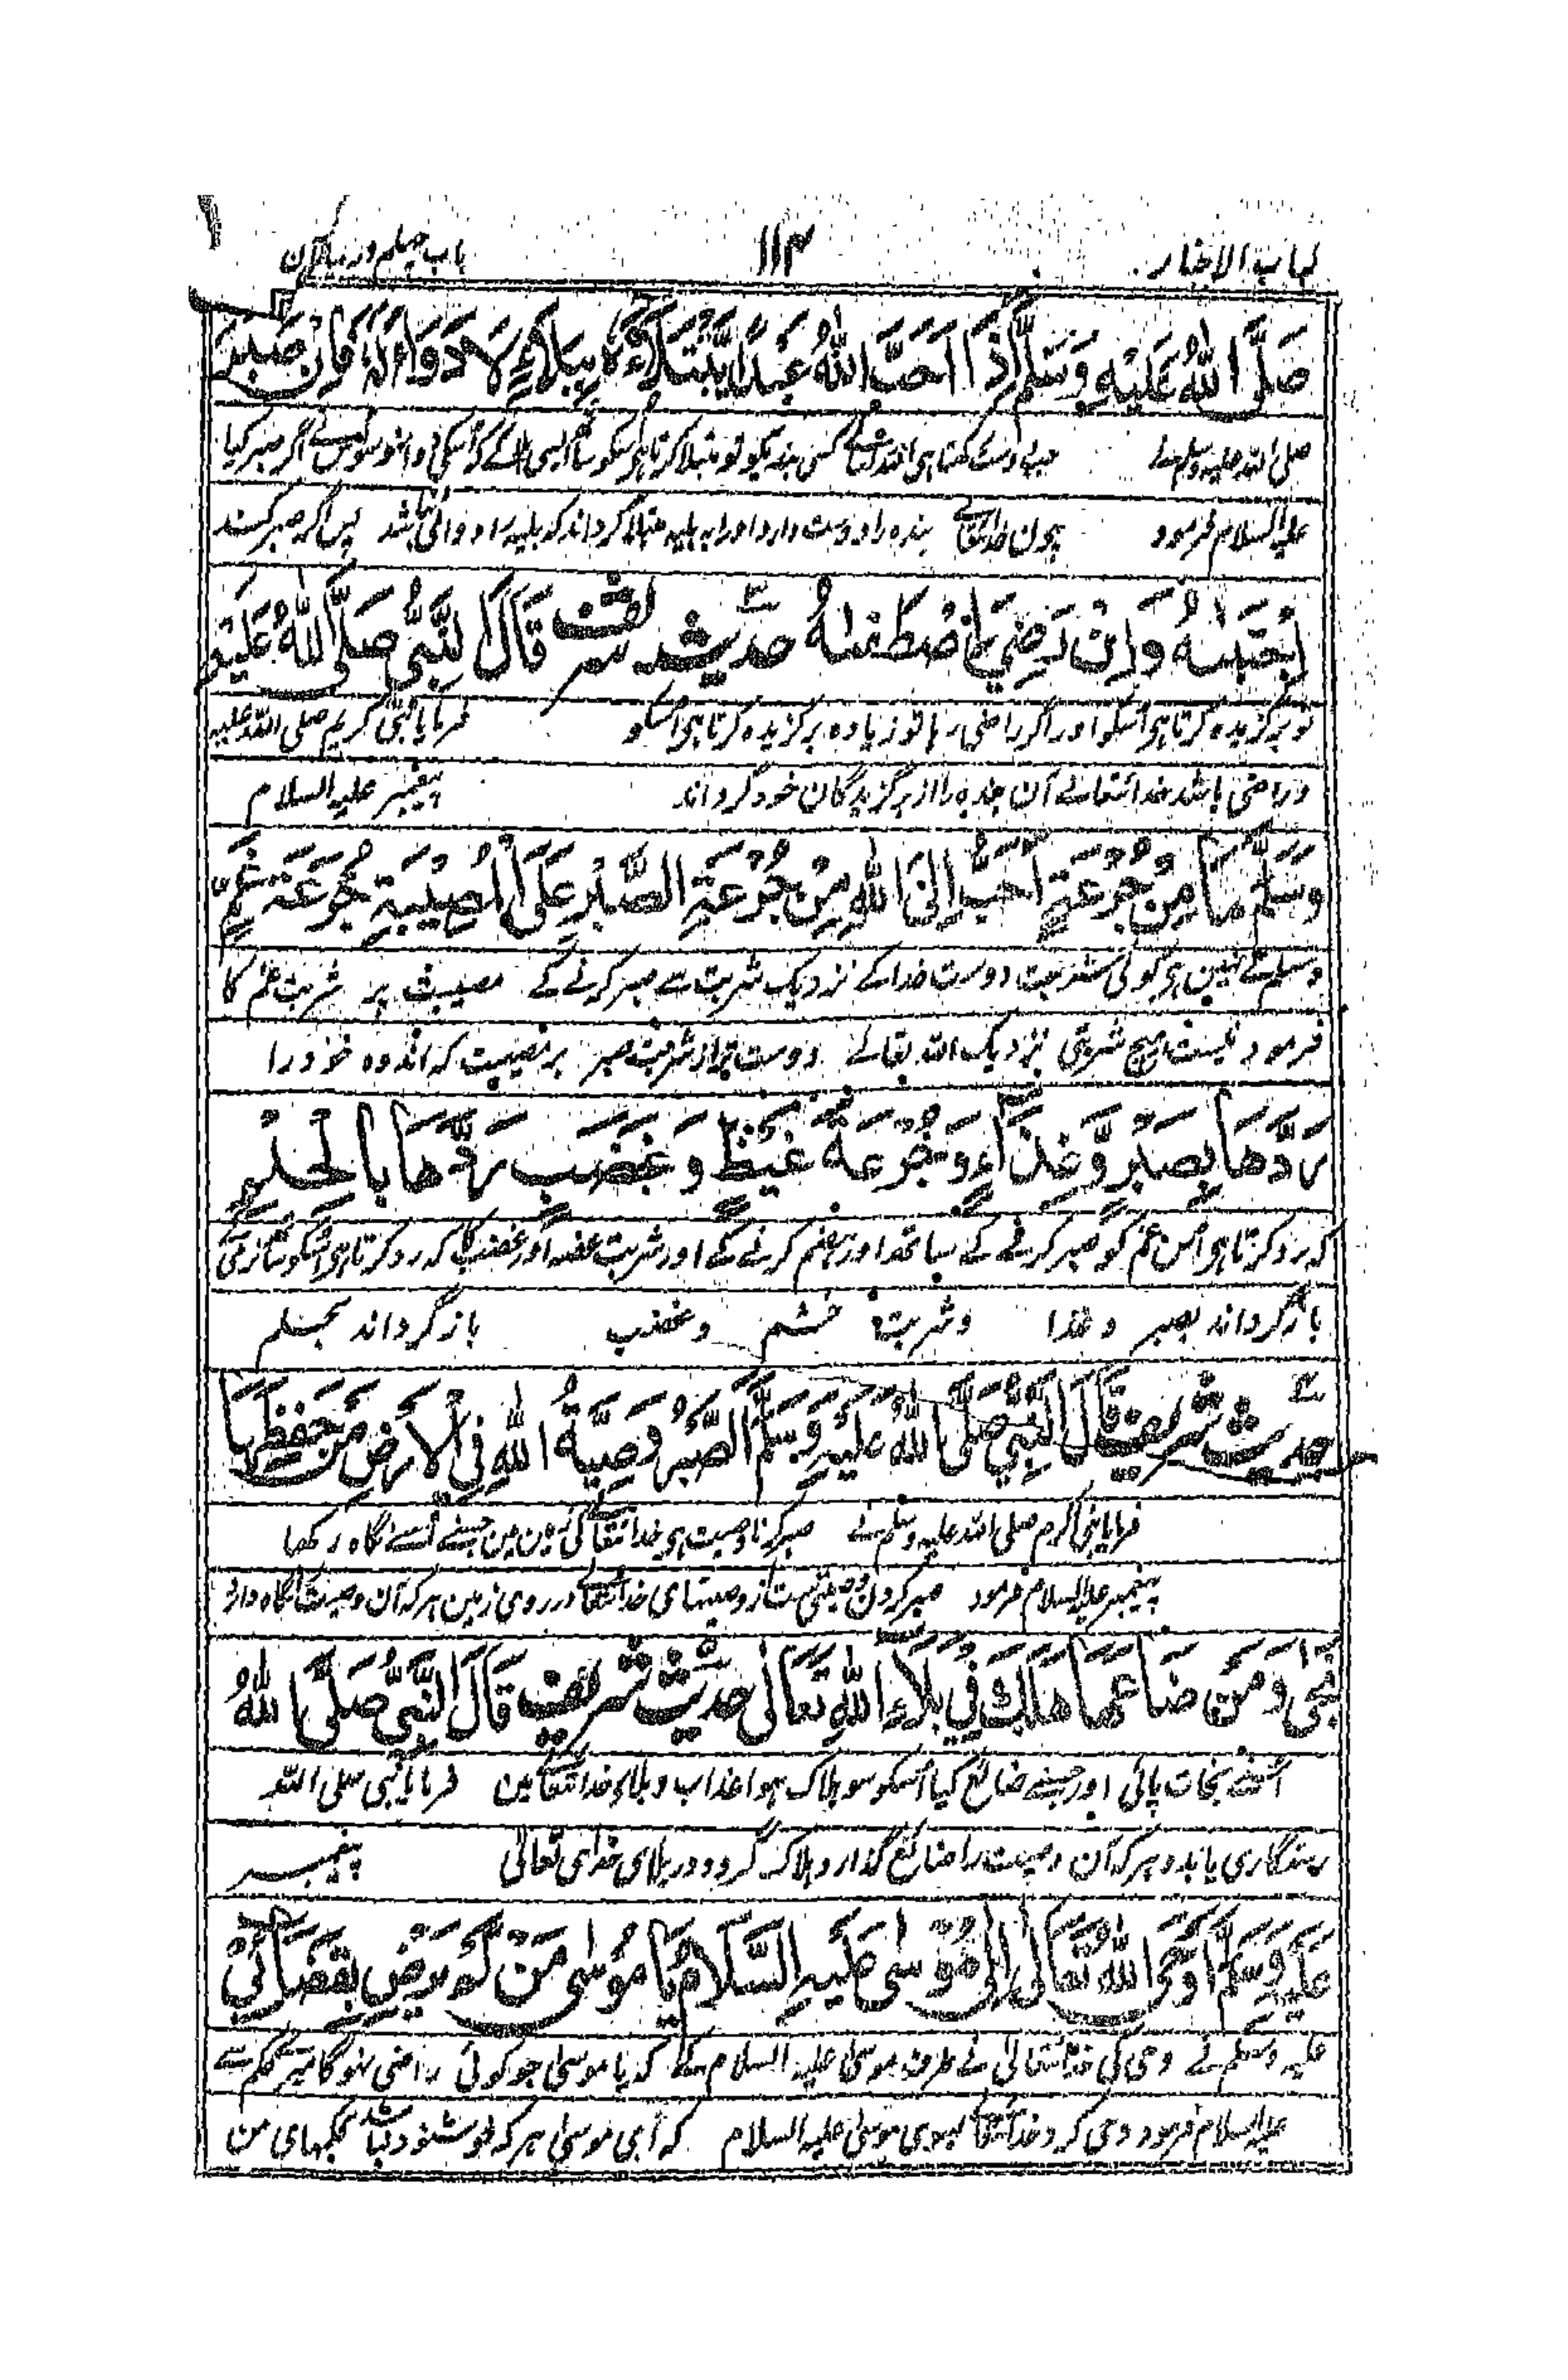 لباب الاخبار ۱۱۴ باب چہلم در بیان
صَلَّی اللهُ عَلَیْهِ وَسَلَّمَ اِذَا اَحَبَّ اللهُ عَبْدًا اِبْتَلَاهُ بِبَلَاءٍ لَا دَوَاءَ لَهُ فَاِنْ صَبَرَ
صلی اللہ علیہ وسلم نے جب دوست رکھتا ہی اللہ تعالے کسی بندیکو تو مبتلا کرتا ہی اسکو ساتھ ایسی بلا کے کہ اسکی دوا نہو سو اگر صبر کیا
علیہ السلام فرمود چون خدایتعالے بندہ را دوست دارد اورا بہ بلیہ مبتلا گرداند کہ بلیہ را دوائی نباشد پس اگر صبر کند
اِجْتَبَاهُ وَاِنْ رَضِيَ اِصْطَفَاهُ حدیث شریف قَالَ النَّبِيُّ صَلَّی اللهُ عَلَیْهِ
تو برگزیدہ کرتا ہی اسکو اور اگر راضی رہا تو زیادہ برگزیدہ کرتا ہی اسکو فرمایا نبی کریم صلی اللہ علیہ
و راضی باشد خدایتعالے آن بندہ را از برگزیدگان خود گرداند پیغمبر علیہ السلام
وَسَلَّمَ مَا مِنْ جُرْعَةٍ اَحَبُّ اِلَی اللهِ مِنْ جُرْعَةِ الصَّبْرِ عَلَی الْمُصِیْبَةِ جُرْعَةَ غَمٍّ
وسلم نے نہین ہی کوئی شربت دوست خدا کے نزدیک شربت سے صبر کرنے کے مصیبت پر شربت غم کا
فرمود نیست ہیچ شربتی نزدیک اللہ تعالے دوست تر از شربت صبر بر مصیبت کہ اندوہ خود را
رَدَّهَا بِصَبْرٍ وَّغِذَاءٍ وَجُرْعَةَ غَیْظٍ وَغَضَبٍ رَدَّهَا بِالْحِلْمِ
کہ رد کرتا ہی اس غم کو صبر کرنے کے ساتھ اور ہضم کرنے کے اور شربت غصہ اور غضب کا کہ رد کرتا ہی اسکو ساتھ نرمی
باز گرداند بصبر و غذا و شربت خشم و غضب باز گرداند بحلم
حدیث شریف قَالَ النَّبِيُّ صَلَّی اللهُ عَلَیْهِ وَسَلَّمَ الصَّبْرُ وَصِیَّةُ اللهِ فِی الْاَرْضِ مَنْ حَفِظَهَا
فرمایا نبی اکرم صلی اللہ علیہ وسلم نے صبر کرنا وصیت ہی خدایتعالے کی زمین مین جسنے اسے نگاہ رکھا
پیغمبر علیہ السلام فرمود صبر کردن وصیتی ست از وصیتہای خدایتعالے در روی زمین ہر کہ آن وصیت را نگاہ دارد
نَجٰی وَمَنْ ضَاعَهَا هَلَكَ فِیْ بَلَاءِ اللهِ تَعَالٰی حدیث شریف قَالَ النَّبِيُّ صَلَّی اللهُ
اسنے نجات پائی اور جسنے ضائع کیا اسکو سو ہلاک ہوا عذاب و بلای خدایتعالے مین فرمایا نبی صلی اللہ
رستگاری یابد و ہر کہ آن وصیت را ضائع گذارد ہلاک گردد در بلای خدای تعالی پیغمبر
عَلَیْهِ وَسَلَّمَ اَوْحَی اللهُ تَعَالٰی اِلٰی مُوْسٰی عَلَیْهِ السَّلَامُ یَا مُوْسٰی مَنْ لَمْ یَرْضَ بِقَضَائِیْ
علیہ وسلم نے وحی کی خدا تعالی نے طرف موسی علیہ السلام کے کہ یا موسی جو کوئی راضی نہوگا میرے حکم سے
علیہ السلام فرمود وحی کرد خدایتعالے بسوی موسی علیہ السلام کہ ای موسی ہر کہ خوشنود نباشد بحکمہای من